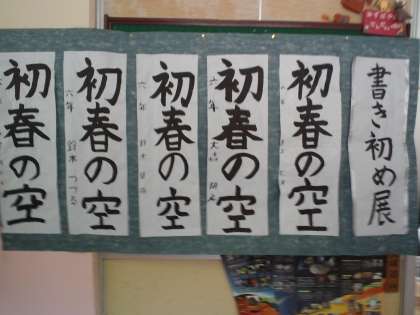 書き初め展
初春の空
初春の空
六年
初春の空
六年
初春の空
六年 鈴木
初春の空